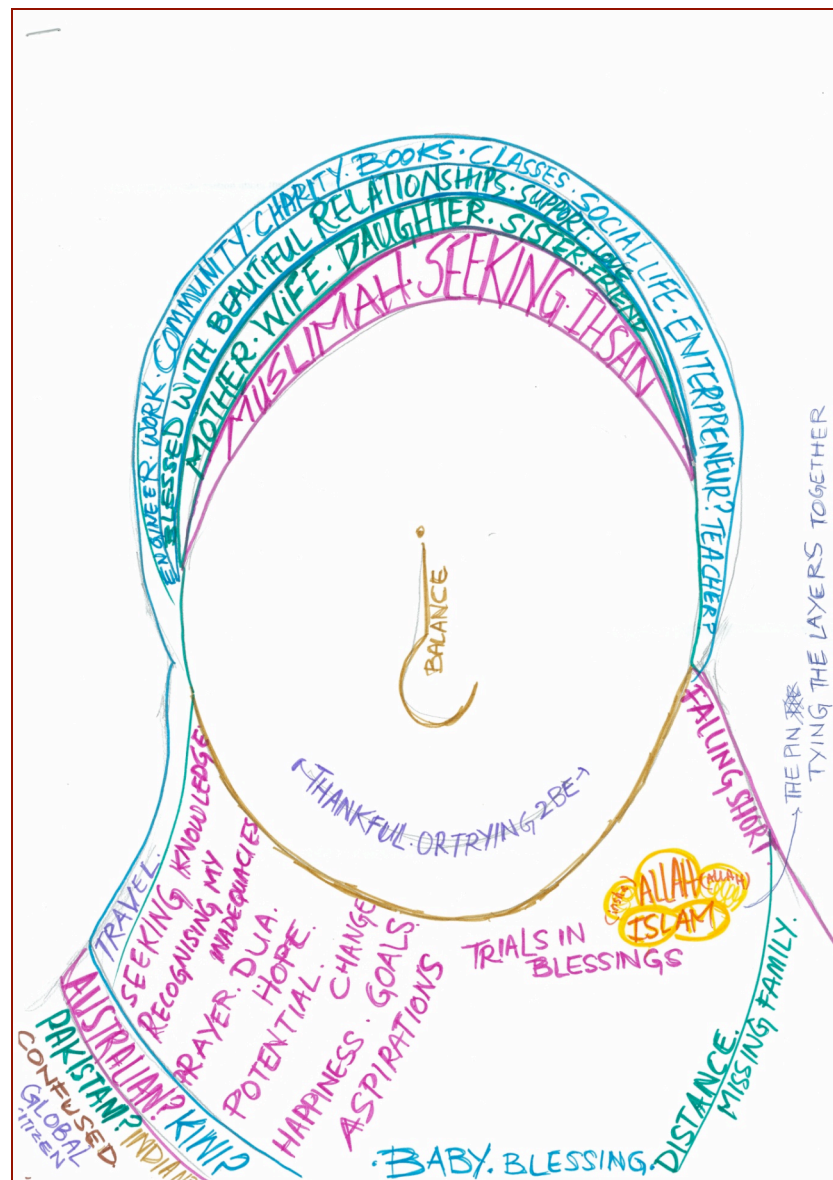 ENGINEER · WORK · COMMUNITY · CHARITY · BOOKS · CLASSES · SOCIAL LIFE · ENTERPRENEUR? TEACHER?
BLESSED WITH BEAUTIFUL RELATIONSHIPS · SUPPORT ·
MOTHER · WIFE · DAUGHTER · SISTER · FRIEND
MUSLIMAH · SEEKING · IHSAN
BALANCE
THANKFUL · OR TRYING 2 BE
THE PIN
TYING THE LAYERS TOGETHER
FALLING SHORT.
ALLAH
(ALLAH)
ISLAM
TRIALS IN
BLESSINGS
TRAVEL.
SEEKING KNOWLEDGE.
RECOGNISING MY
INADEQUACIES
PRAYER. DUA.
HOPE.
POTENTIAL.
CHANGE
HAPPINESS · GOALS.
ASPIRATIONS
KIWI?
AUSTRALIAN?
PAKISTANI?
INDIAN
CONFUSED.
GLOBAL
CITIZEN
DISTANCE.
MISSING FAMILY.
· BABY. BLESSING.